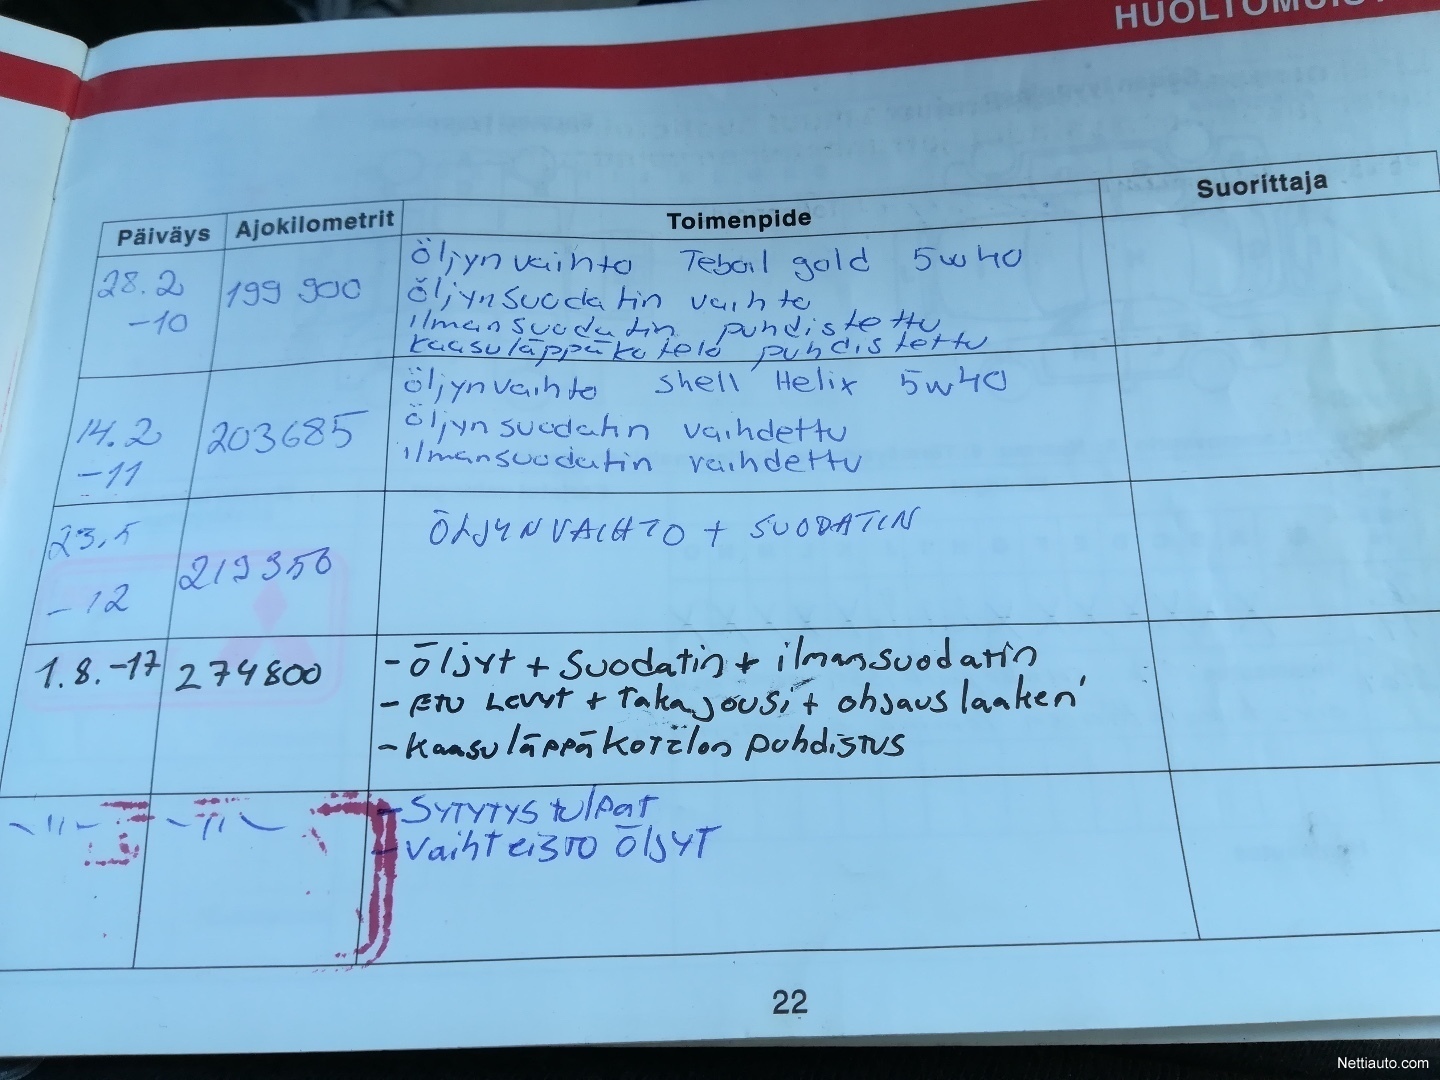 HUOLTOMUIST
Päiväys Ajokilometrit Toimenpide Suorittaja
28.2 -10 199 900 Öljynvaihto Teboil gold 5w40
Öljynsuodatin vaihto
ilmansuodatin puhdistettu
kaasuläppäkotelo puhdistettu
14.2 -11 203685 Öljynvaihto Shell Helix 5w40
Öljynsuodatin vaihdettu
ilmansuodatin vaihdettu
23.5 -12 219356 ÖLJYNVAIHTO + SUODATIN
1.8.-17 274800 - Öljyt + Suodatin + ilmansuodatin
- ETU LEVYT + Takajousi + ohjauslaakeri
- Kaasuläppäkotelon puhdistus
-11- -11- - SYTYTYStulpat
- Vaihteisto ÖljyT
22
Nettiauto.com